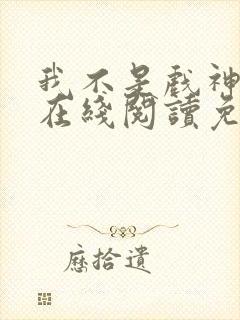 我不是戲神
在綫閱讀免
歷拾遺